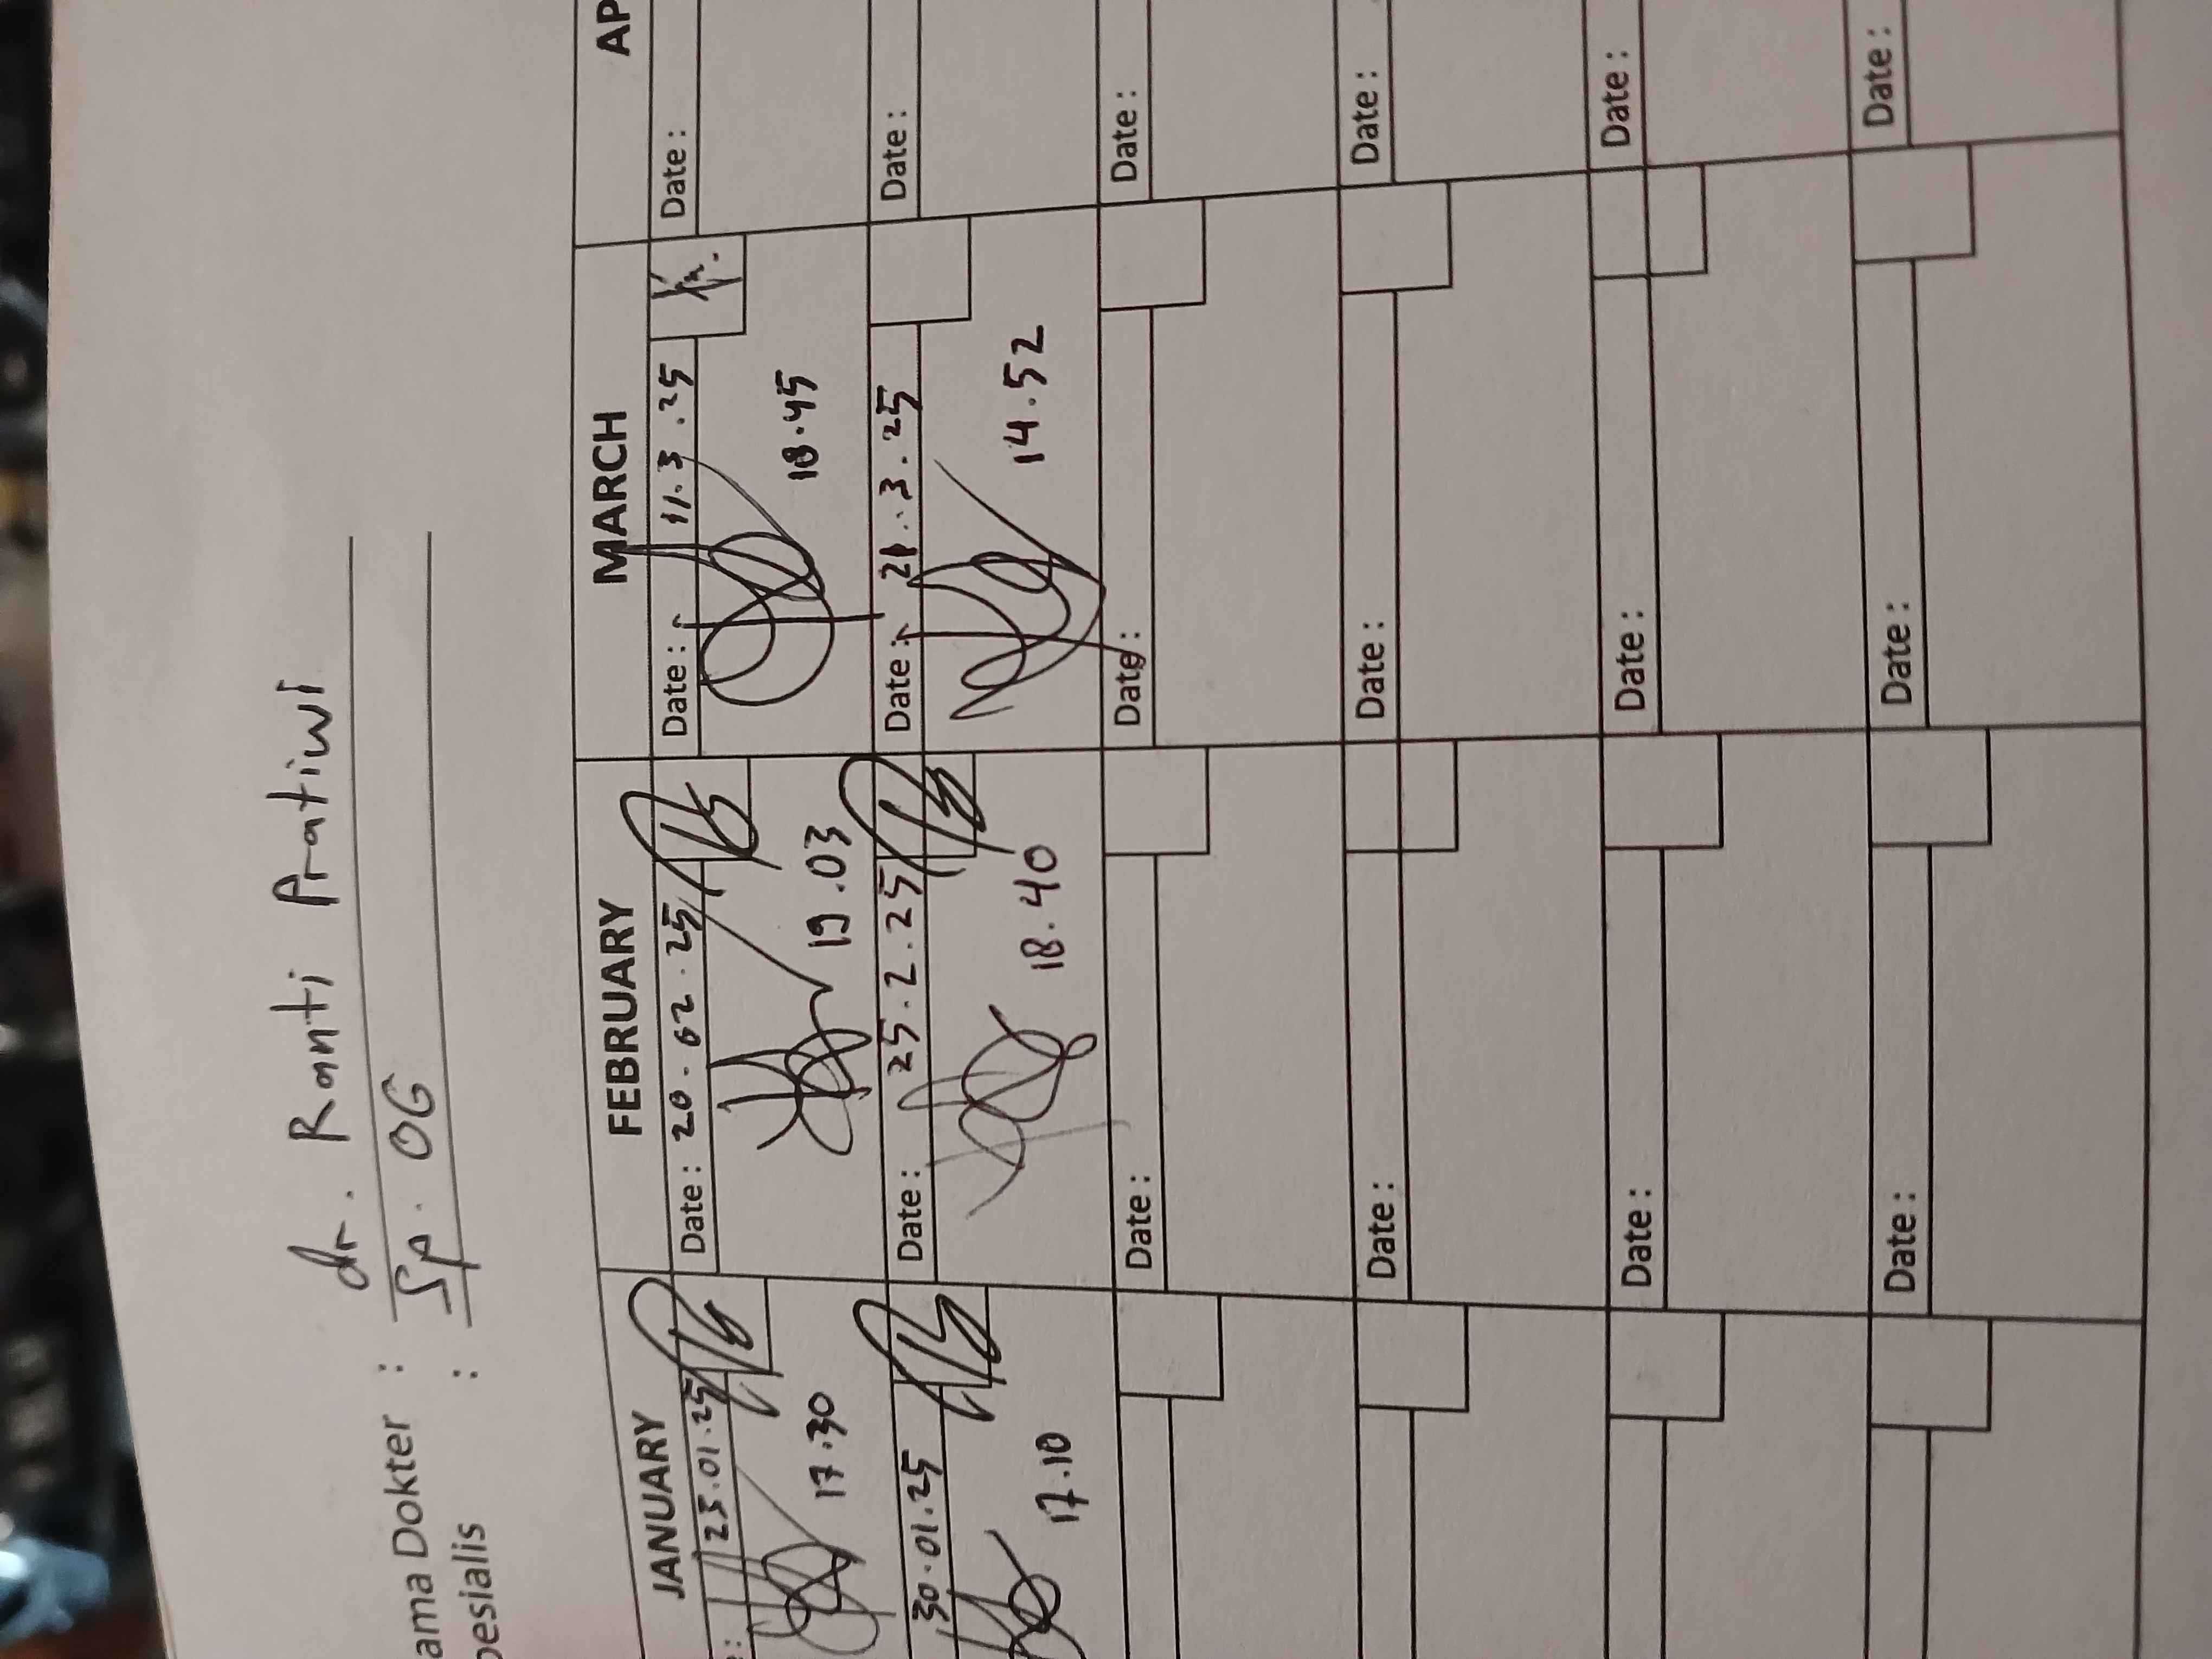 ama Dokter : dr. Ranti Pratiwi
pesialis : Sp. OG
JANUARY FEBRUARY MARCH AP
: 23.01.25 Date : 20.02.25 Date : 11.3.25 Date :
17.30 19.03 18.45
30.01.25 Date : 25.2.25 Date : 21.3.25 Date :
17.10 18.40 14.52
Date : Date : Date :
Date : Date : Date :
Date : Date : Date :
Date : Date : Date :